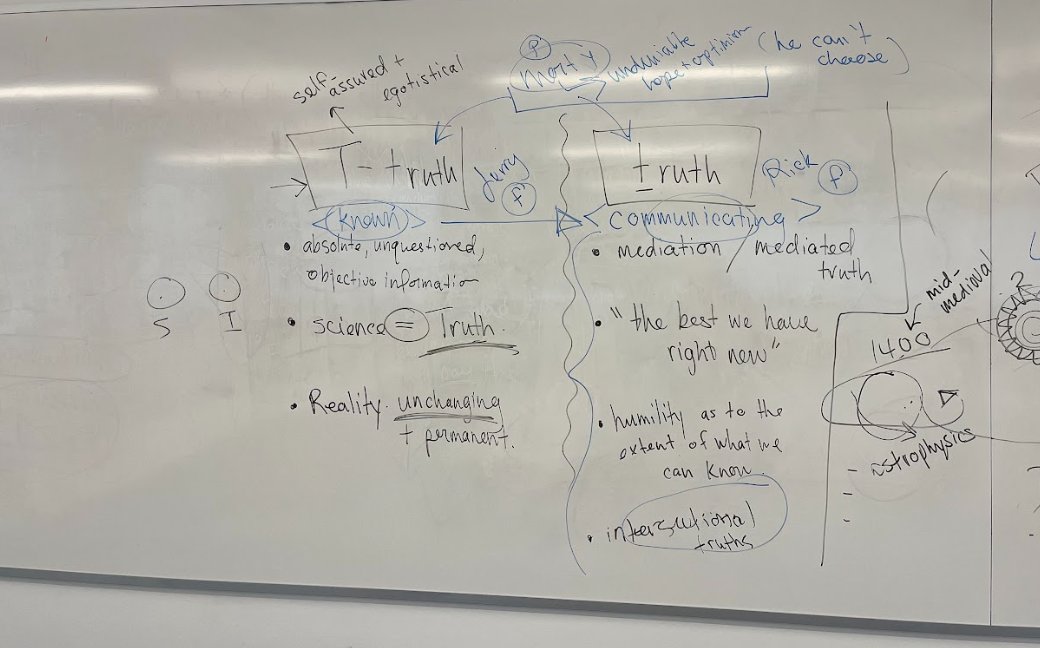 self-assured + egotistical
P
Morty
undeniable hope + optimism
(he can't choose)
T-truth
Jerry
f'
<known>
• absolute, unquestioned,
objective information
• science = Truth.
• Reality. unchanging
+ permanent.
S I
truth
Rick
f'
<communicating>
• mediation / mediated
truth
• "the best we have
right now"
• humility as to the
extent of what we
can know
• intersectional
truths
mid-
medieval
1400
astrophysics
?